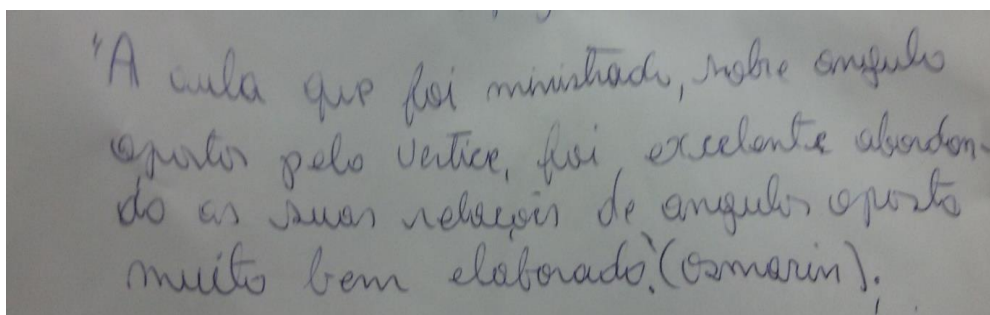 "A aula que foi ministrado, sobre angulo
oposto pelo vertice, foi excelente abordan-
do as suas relações de angulos oposto
muito bem elaborado." (Osmarin).